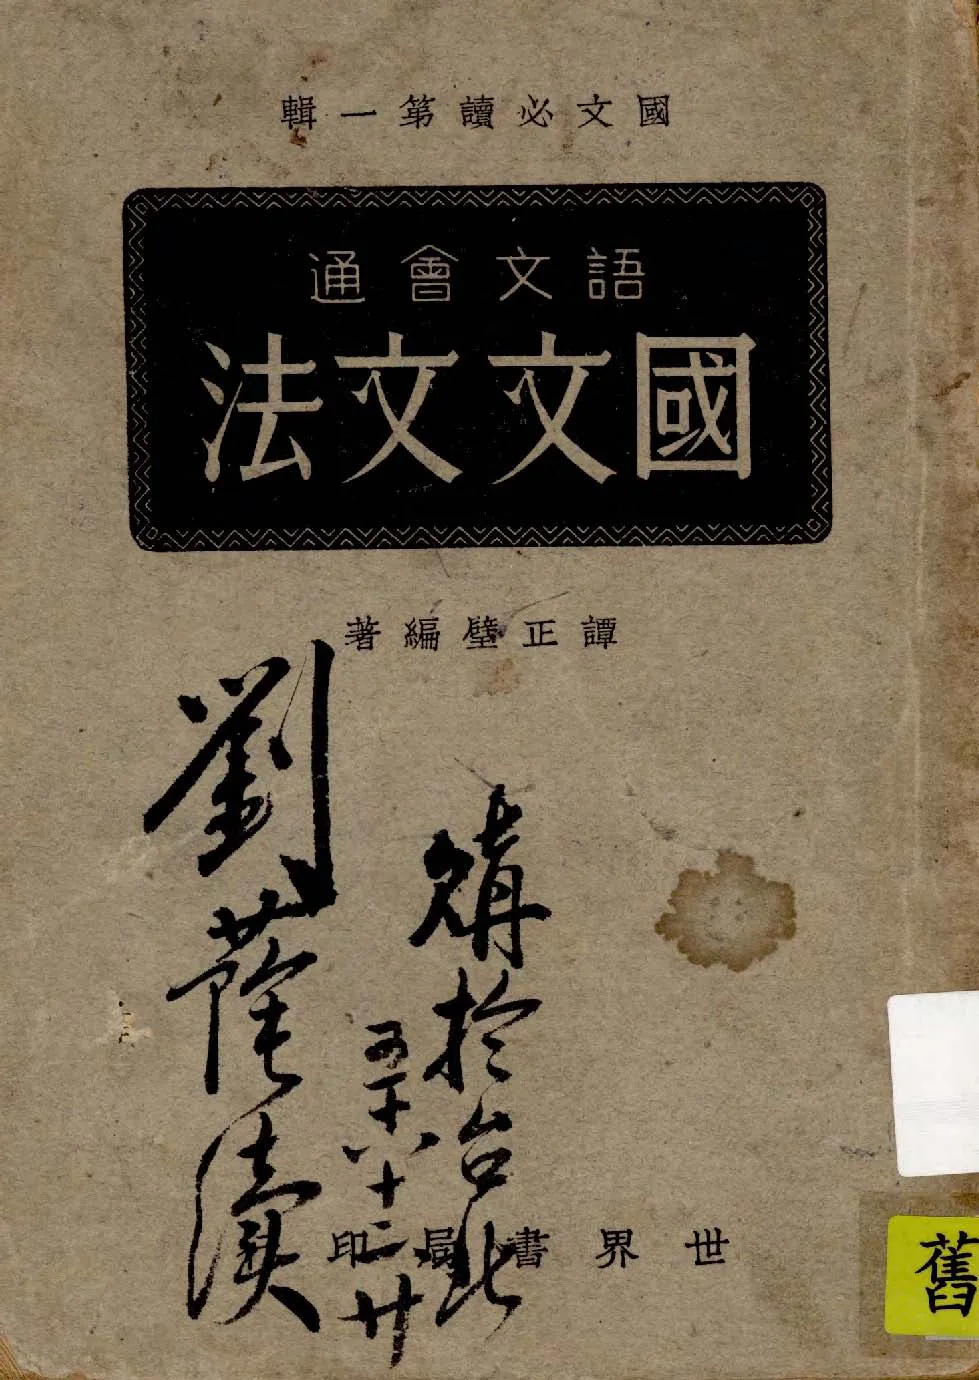 國文必讀第一輯
語文會通
國文文法
譚正璧編著
購於台北
五十八十二廿
劉蔭
世界書局印
舊